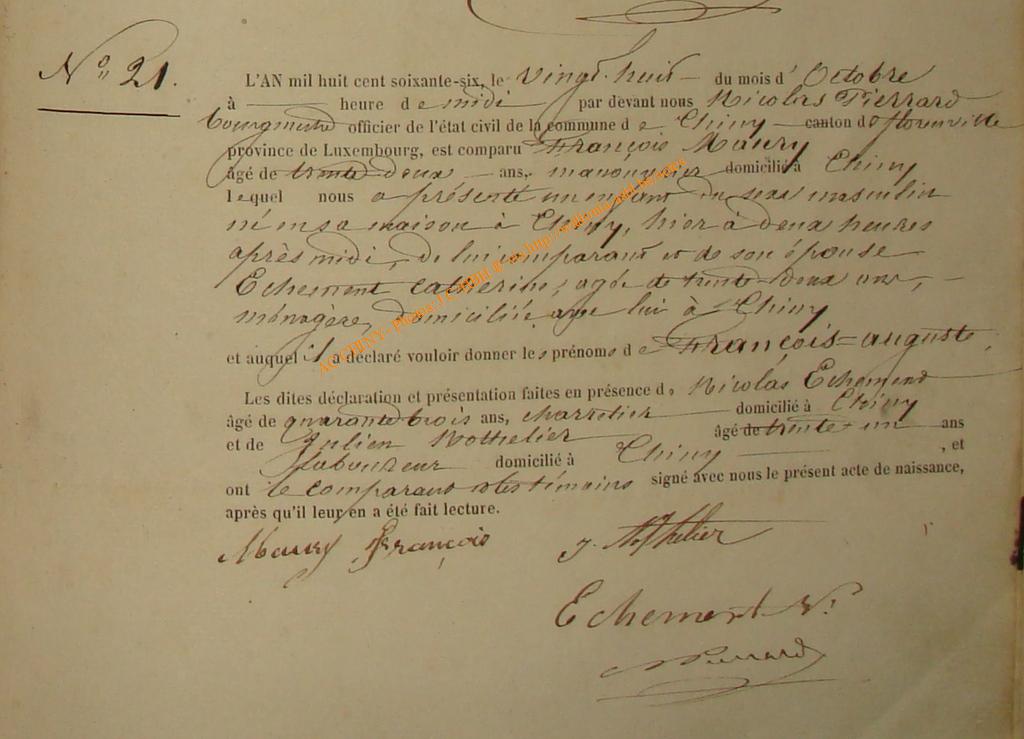 N° 21.
L'AN mil huit cent soixante-six, le vingt-huit du mois d' Octobre
à heure de midi par devant nous Nicolas Pierrard
bourgmestre officier de l'état civil de la commune de Chiny canton de florenville
province de Luxembourg, est comparu François Maury
âgé de trente-deux ans, manouvrier domicilié à Chiny
lequel nous a présenté un enfant du sexe masculin
né en sa maison à Chiny, hier à deux heures
après midi, de lui comparant et de son épouse
Echement Catherine, agée de trente-deux ans,
ménagère, domiciliée avec lui à Chiny
et auquel il a déclaré vouloir donner les prénoms de François=auguste.
Les dites déclaration et présentation faites en présence de Nicolas Echement
âgé de quarante trois ans, charretier domicilié à Chiny
et de Julien Nothelier âgé de trente-un ans
laboureur domicilié à Chiny , et
ont le comparant et les témoins signé avec nous le présent acte de naissance,
après qu'il leur en a été fait lecture.
Maury François J. Nothelier
Echement N.
Pierrard